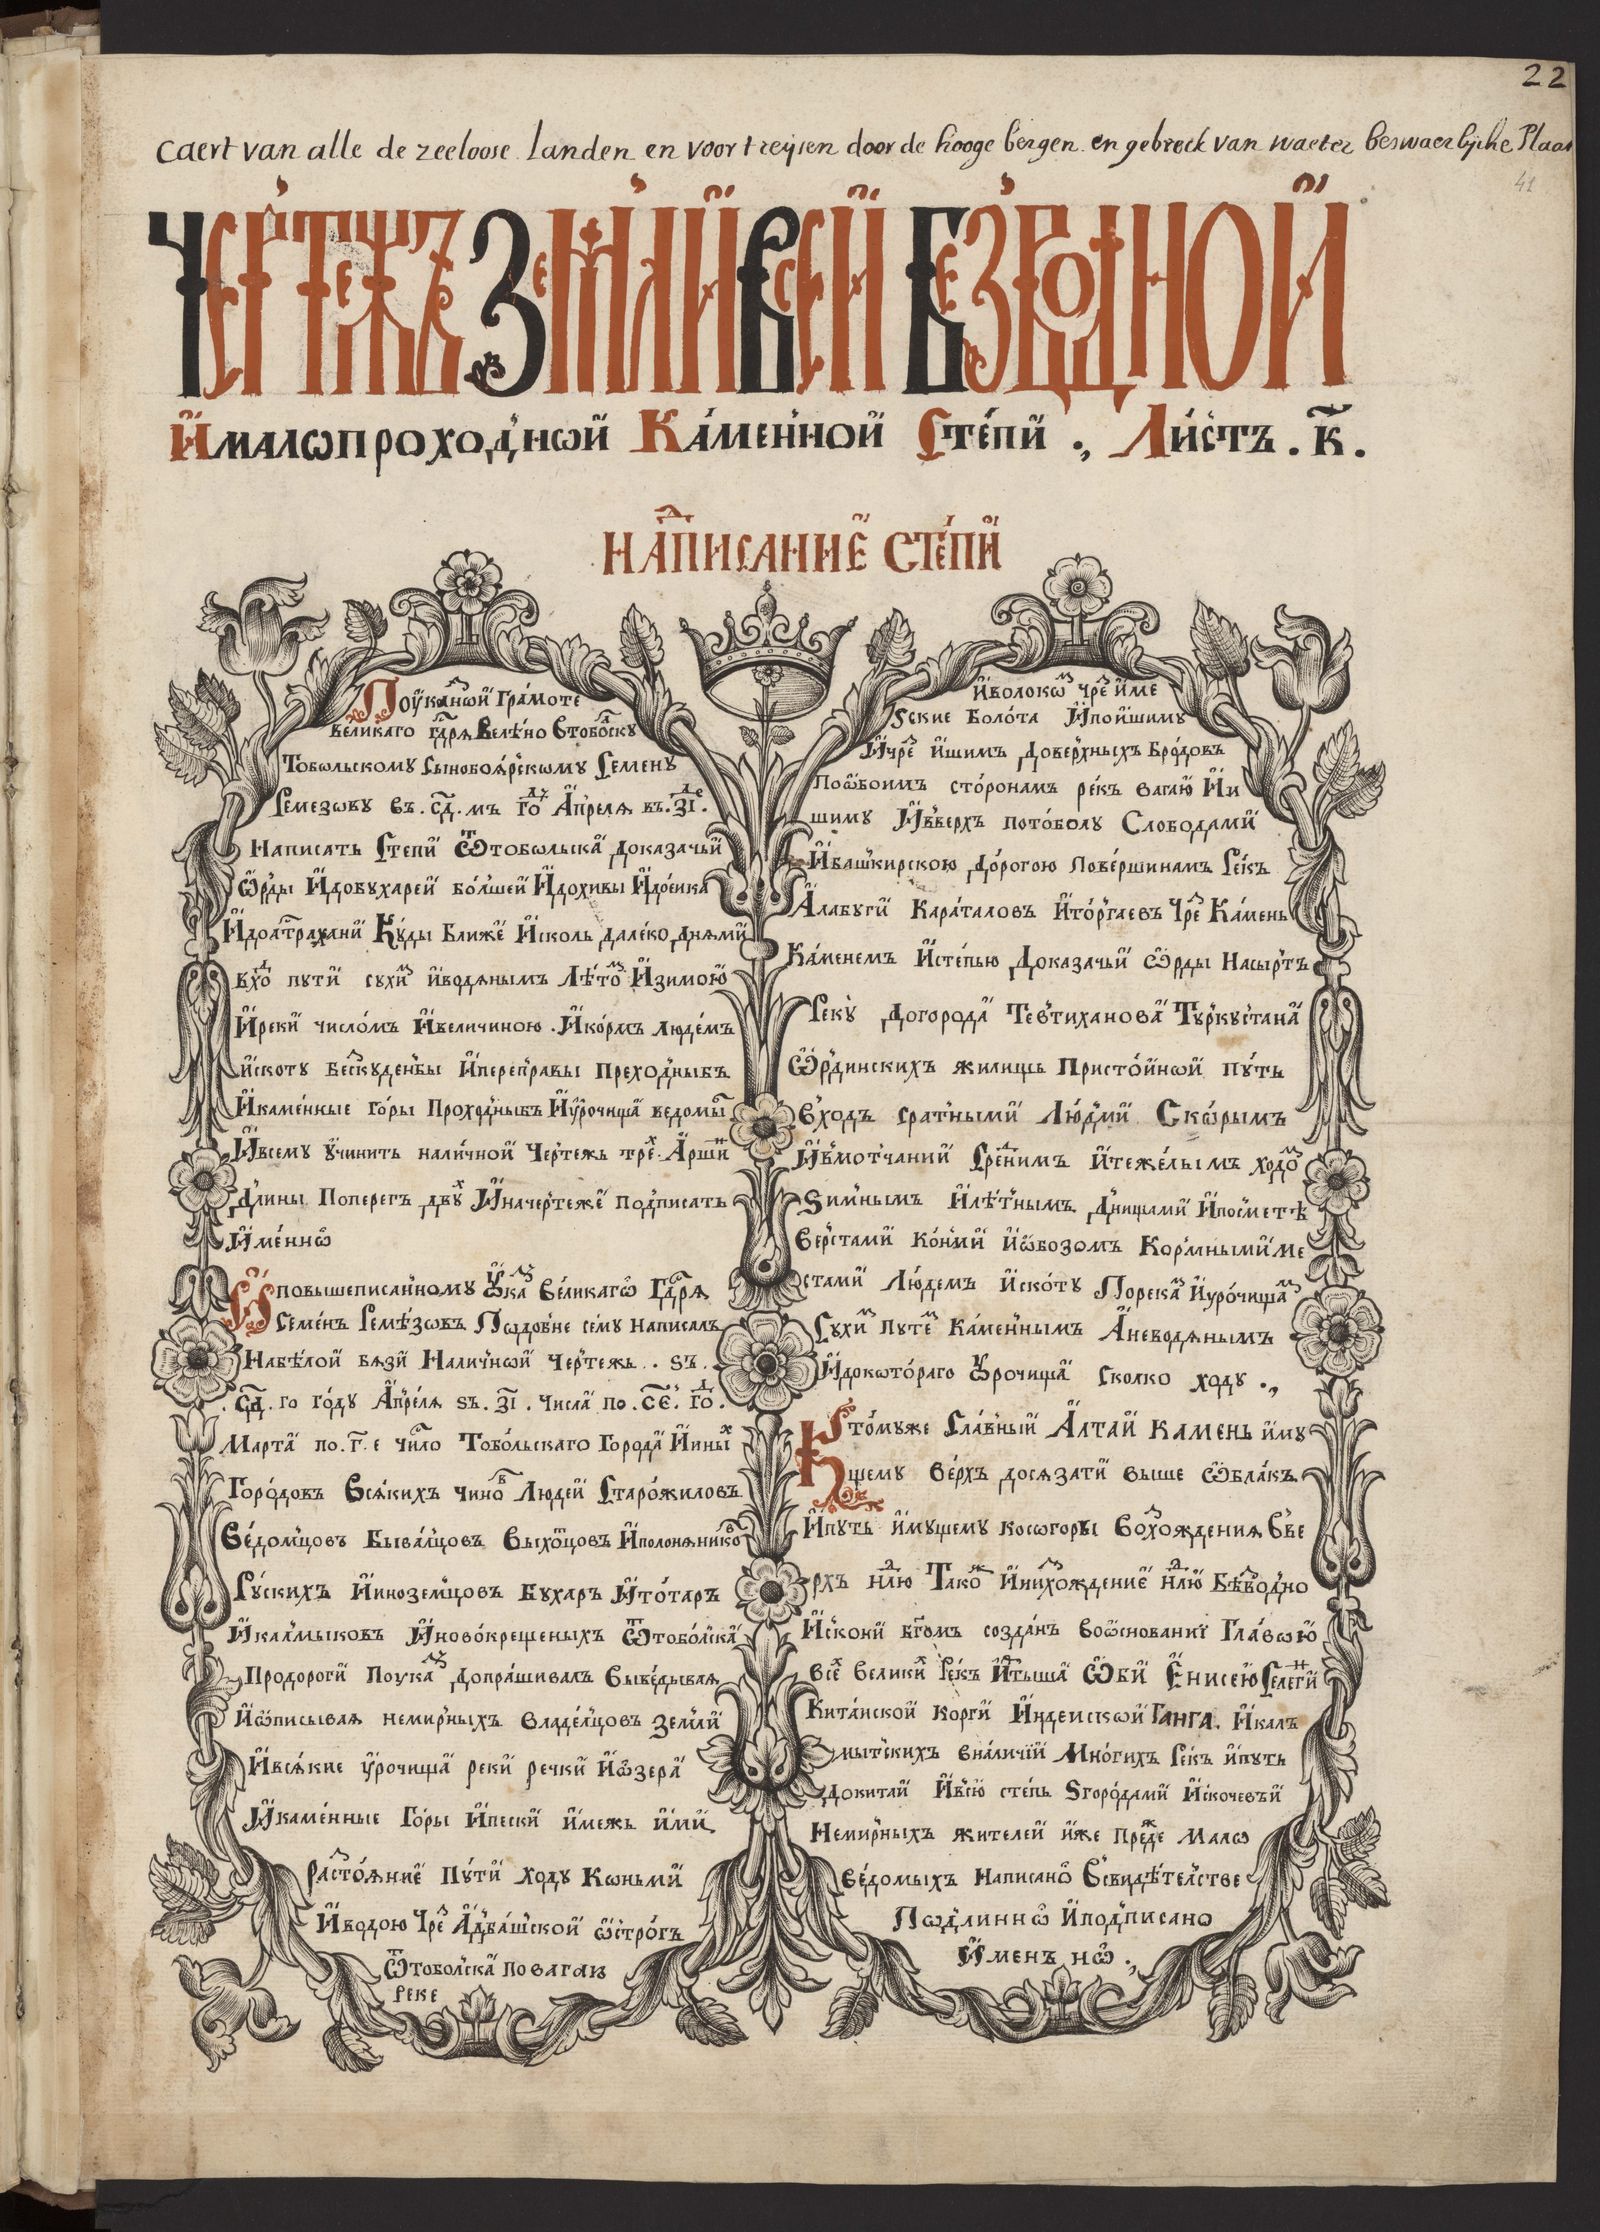 22
Caert van alle de zeeloose landen en voort reysen door de hooge bergen en gebreck van waeter beswaerlycke Plaas
41
Чертежъ Земли Всей Безводной
И малѡпроходнѡй Каменной Степи ., Листъ . к҃ .
Написание Степи
По указнѡй грамоте
великаго гдря велено в тобоску
Тобольскому сынобоярскѡму Семену
Ремезову въ . сд . мъ го апреля въ . зі .
Написать степи ѿ тобольска до казачьи
ѡрды и до бухареи болшей и до хивы и до еика
и до астрахани куды ближе и сколь далеко днями
в хо пути сухи и водянымъ лѣто и зимою
и реки числомъ и величиною . и кормъ людемъ
и скоту бескуденъ бы и переправы преходныбъ
и каменные горы проходныбъ и урочища ведомы
и всему учинить наличной чертежь тре аршин
длины поперегъ двух и на чертеже подписать
именнѡ
И по вышеписанному указ великагѡ гдря
Семенъ Ремезовъ пѡдобне сему написалъ
на белой бязи наличнѡй чертежь . . ѕъ .
. сд . го году апреля ѕъ . зі . числа по . се . го .
марта по . г . е число тобольскаго города и иных
городовъ всякихъ чинов людей старожиловъ
ведомцовъ бывалцовъ выхотцовъ и полоняников
руских и иноземцовъ бухаръ и тотаръ
и калмыковъ и новокрещеныхъ ѿ тоболска
про дороги по указ допрашивалъ выведывая
и ѡписывая немирныхъ владелцовъ земли
и всякие урочища реки речки и ѡзера
и каменные горы и пески и межь ими
растояние пути ходу кѡньми
и водою чре адбашской ѡстрогъ
ѿ тоболска по вагаю
реке
и волокѡм чре име
ѕские болота и по ишиму
и чре ишимъ до верхныхъ бродовъ
по ѡбоимъ сторонам рек вагаю и и
шиму и вверхъ по тоболу слободами
и башкирскою дорогою по вершинамъ рекъ
алабуги караталовъ и торгаевъ чре камень
каменемъ и степью до казачьи ѡрды на сыртъ
реку до города тевтиханова туркустана
ѡрдинскихъ жилищь пристойнѡй путь
входъ с ратными людми скѡрымъ
и в мотчании среднимъ и тежелымъ ходом
ѕимнымъ и лѣтнымъ днищами и по сметѣ
верстами конми и ѡбозомъ кормными ме
стами людемъ и скоту по река и урочищам
сухи путем каменнымъ а не водянымъ
и до которагѡ урочища сколко ходу .,
К томуже славный алтай камень иму
щему верхъ досязати выше ѡблакъ
и путь имущему косогоры восхождения вве
рхъ нлю також и нисхождение нлю безводно
искони бгомъ созданъ во ѡснование главою
всех великих рекъ иртыша ѡби енисею селенги
китайской корги индейскѡй ганга . и кал
мытскихъ в наличии многихъ рекъ и путь
до китай и всю степь ѕ городами и с кочевьи
немирныхъ жителей иже прежде малѡ
ведомыхъ написано в свидѣтелстве
пѡдлиннѡ и подписано
имен нѡ .,